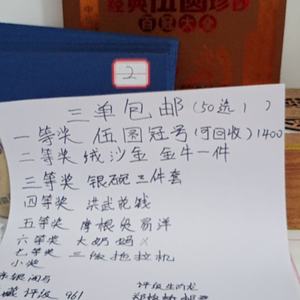 经典伍圆珍
百冠大全
2
三单包邮(50选1)
一等奖 伍圆冠号(可回收)1400
二等奖 绒沙金 金牛一件
三等奖 银碗三件套
四等奖 洪武花钱
五等奖 摩根免易洋
六等奖 大奶妈
七等奖 三版拖拉机
小奖
评级
961